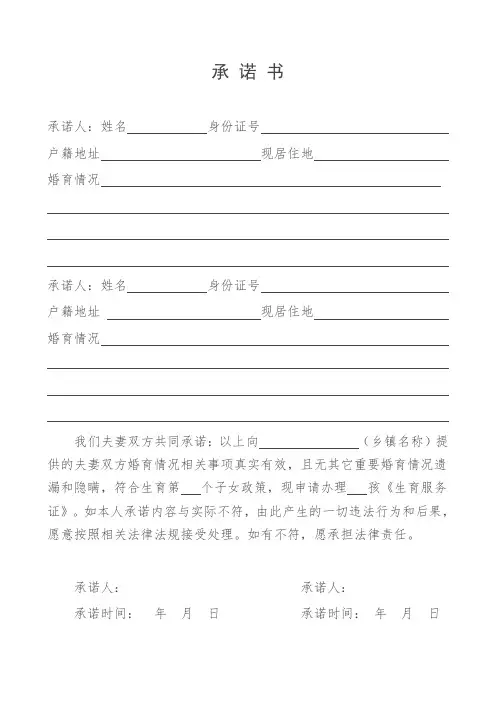 承 诺 书
承诺人：姓名________身份证号____________________
户籍地址________________现居住地______________
婚育情况__________________________________
承诺人：姓名________身份证号____________________
户籍地址 ________________现居住地______________
婚育情况___________________________________
我们夫妻双方共同承诺：以上向__________（乡镇名称）提
供的夫妻双方婚育情况相关事项真实有效，且无其它重要婚育情况遗
漏和隐瞒，符合生育第__个子女政策，现申请办理__孩《生育服务
证》。如本人承诺内容与实际不符，由此产生的一切违法行为和后果，
愿意按照相关法律法规接受处理。如有不符，愿承担法律责任。
承诺人： 承诺人：
承诺时间： 年 月 日 承诺时间： 年 月 日